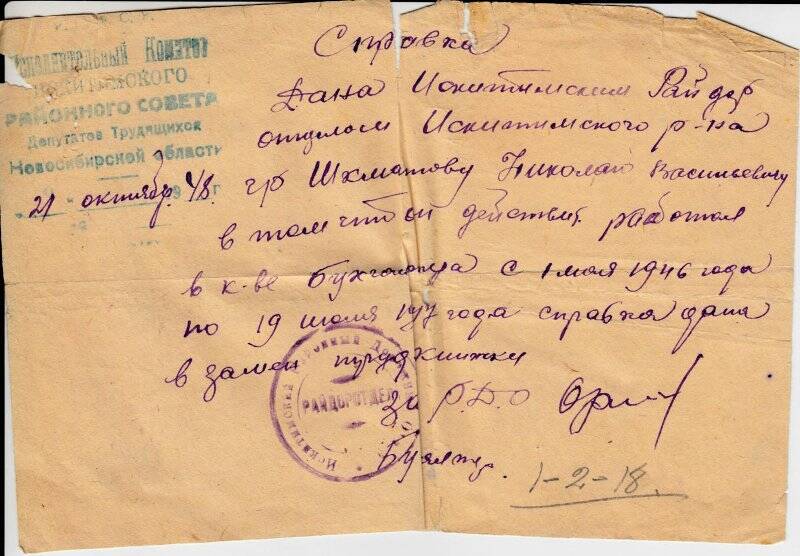 С. С. Р.
Исполнительный Комитет
ИСКИТИМСКОГО
РАЙОННОГО СОВЕТА
Депутатов Трудящихся
Новосибирской области
21 октября 48 г
Справка
Дана Искитимским Райдор
отделом Искитимского р-на
гр Шхматову Николай Васильевичу
в том что он действит. работал
в к-ве бухгалтера с 1 мая 1946 года
по 19 июля 1947 года справка дана
в замен трудкнижки
РАЙДОРОТДЕЛ
за Р.Д.О
1-2-18.